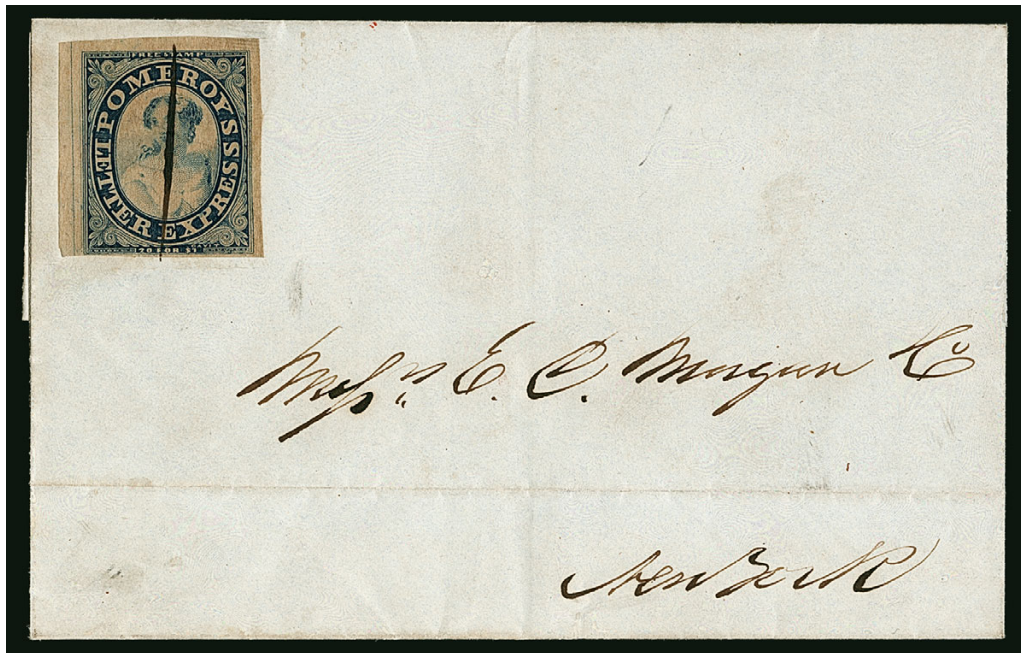 FREE STAMP
POMEROYS LETTER EXPRESS
20 FOR $1
Mess^rs E. C. Morgan Co
New York